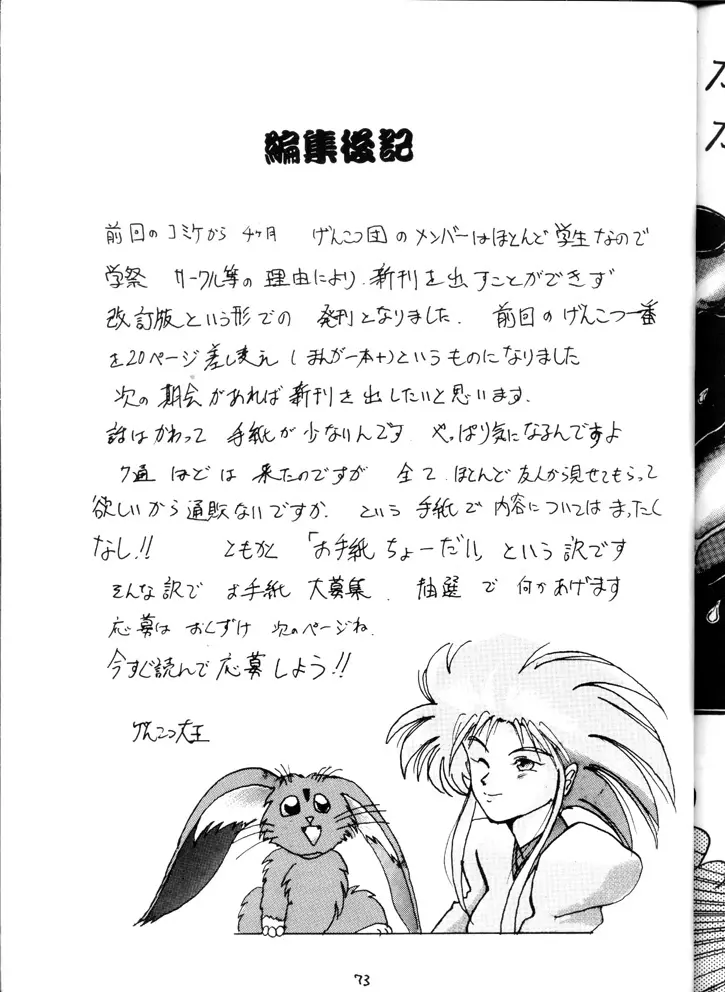 編集後記
前回のコミケから 4ヶ月 げんこつ団のメンバーはほとんど学生なので
学祭 サークル等の理由により 新刊を出すことができず
改訂版という形での 発刊となりました. 前回のげんこつ一番
を20ページ差し変え (まんが一本+)というものになりました
次の期会があれば新刊を出したいと思います.
話はかわって 手紙が少ないんです やっぱり気になるんですよ
7通 ほどは 来たのですが 全て、ほとんど友人から見せてもらって
欲しいから通販ないですか. という手紙で内容についてはまったく
なし!! ともかく「お手紙ちょーだい」という訳です
そんな訳で お手紙 大募集. 抽選で何かあげます
応募は おくずけ 次のページね.
今すぐ読んで応募しよう!!
げんこつ大王
73